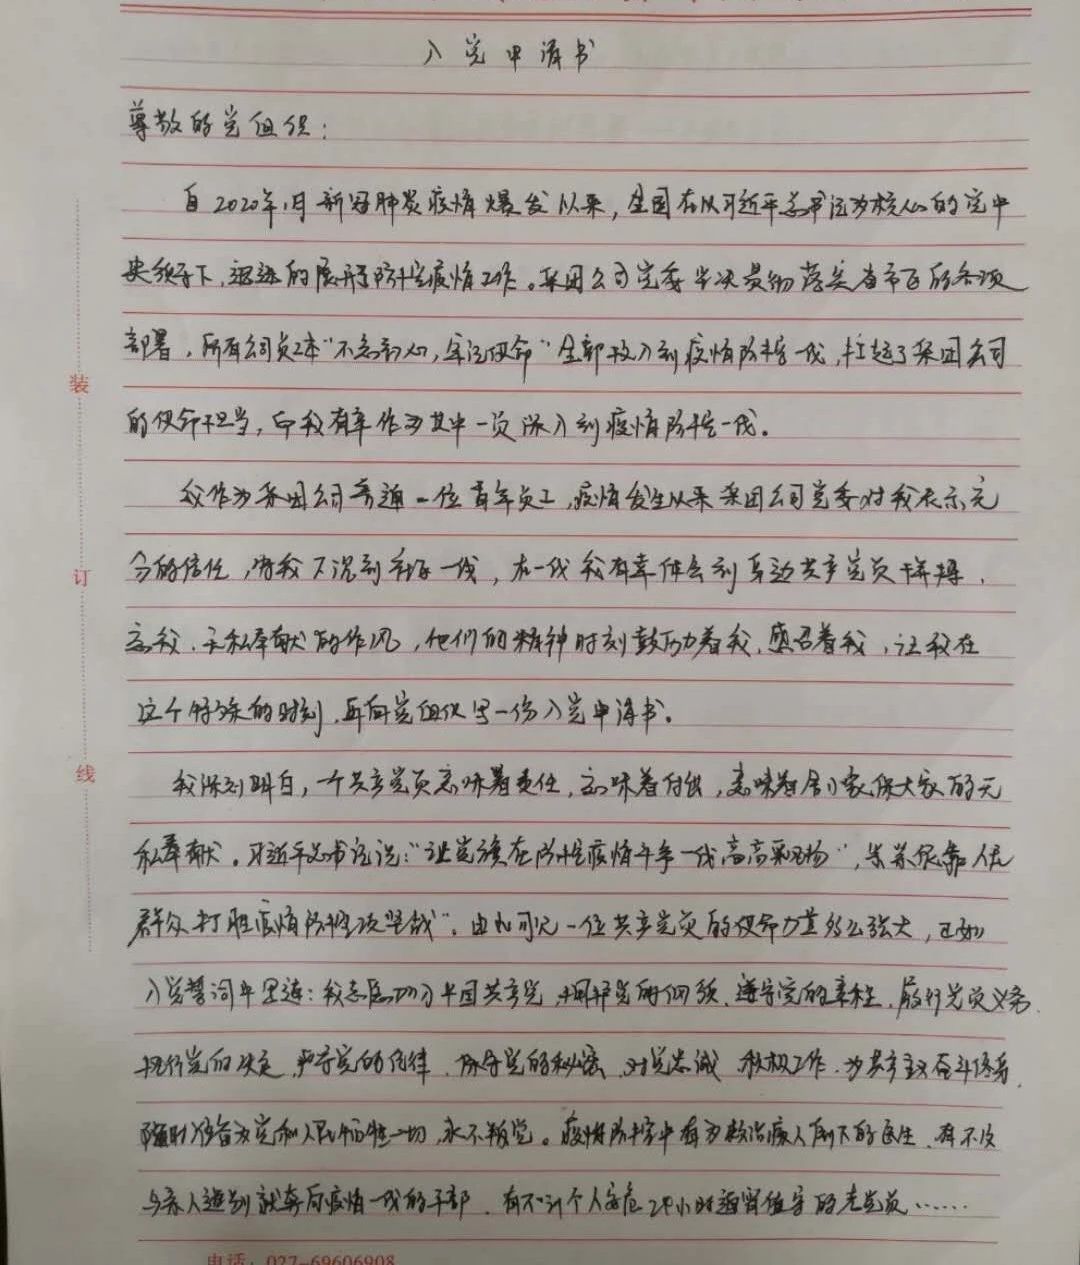 入党申请书
尊敬的党组织：
自2020年1月新冠肺炎疫情爆发以来，全国在以习近平总书记为核心的党中
央领导下，迅速的展开了防控疫情工作。集团公司党委坚决贯彻落实省市区的各项
部署，所有公司员工本"不忘初心，牢记使命"全部投入到疫情防控一线，扛起了集团公司
的使命担当，而我有幸作为其中一员深入到疫情防控一线。
我作为集团公司普通一位青年员工，疫情发生以来集团公司党委对我表示充
分的信任，将我下沉到社区一线，在一线我有幸体会到身边共产党员拼搏、
忘我、无私奉献的作风，他们的精神时刻鼓励着我，感召着我，让我在
这个特殊的时刻，再向党组织写一份入党申请书。
我深刻明白，一个共产党员意味着责任，意味着付出，意味着舍小家保大家的无
私奉献。习近平总书记说："让党旗在防控疫情斗争一线高高飘扬"，紧紧依靠人民
群众打赢疫情防控攻坚战"。由此可见一位共产党员的使命力量多么强大，正如
入党誓词中里述：我志愿加入中国共产党，拥护党的纲领、遵守党的章程、履行党员义务、
执行党的决定，严守党的纪律，保守党的秘密，对党忠诚，积极工作，为共产主义奋斗终身，
随时准备为党和人民牺牲一切，永不叛党。疫情防控中有为救治病人倒下的医生、有不及
与亲人道别就奔向疫情一线的干部、有不计个人安危24小时通宵值守的老党员……
装
订
线
电话：027-69606908